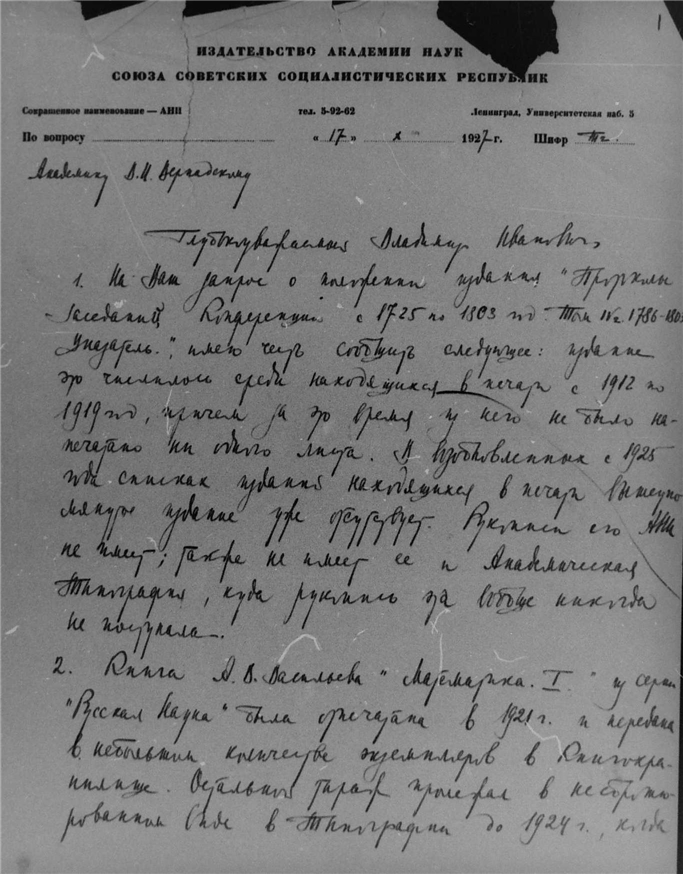 1
ИЗДАТЕЛЬСТВО АКАДЕМИИ НАУК
СОЮЗА СОВЕТСКИХ СОЦИАЛИСТИЧЕСКИХ РЕСПУБЛИК
Сокращенное наименование — АНИ тел. 5-92-62 Ленинград, Университетская наб. 5
По вопросу « 17 » X 1927 г. Шифр Тг.
Академику В.И. Вернадскому
Глубокоуважаемый Владимир Иванович,
1. На Ваш запрос о положении издания "Протоколы
Заседаний Конференции с 1725 по 1803 год. Том IV 1786-1803
Указатель.", имею честь сообщить следующее: издание
это числилось среди находящихся в печати с 1912 по
1919 год, причем за это время из него не было на-
печатано ни одного листа. В возобновленных с 1925
года списках изданий находящихся в печати вышеупо-
мянутое издание уже отсутствует. Рукописи его АНИ
не имеет; также не имеет ее и Академическая
Типография, куда рукопись эта вообще никогда
не поступала.
2. Книга А.В. Васильева "Математика. I." из серии
"Русская Наука" была отпечатана в 1921 г. и передана
в небольшом количестве экземпляров в Книгохра-
нилище. Остальной тираж пролежал в несброшю-
рованном виде в Типографии до 1924 г., когда